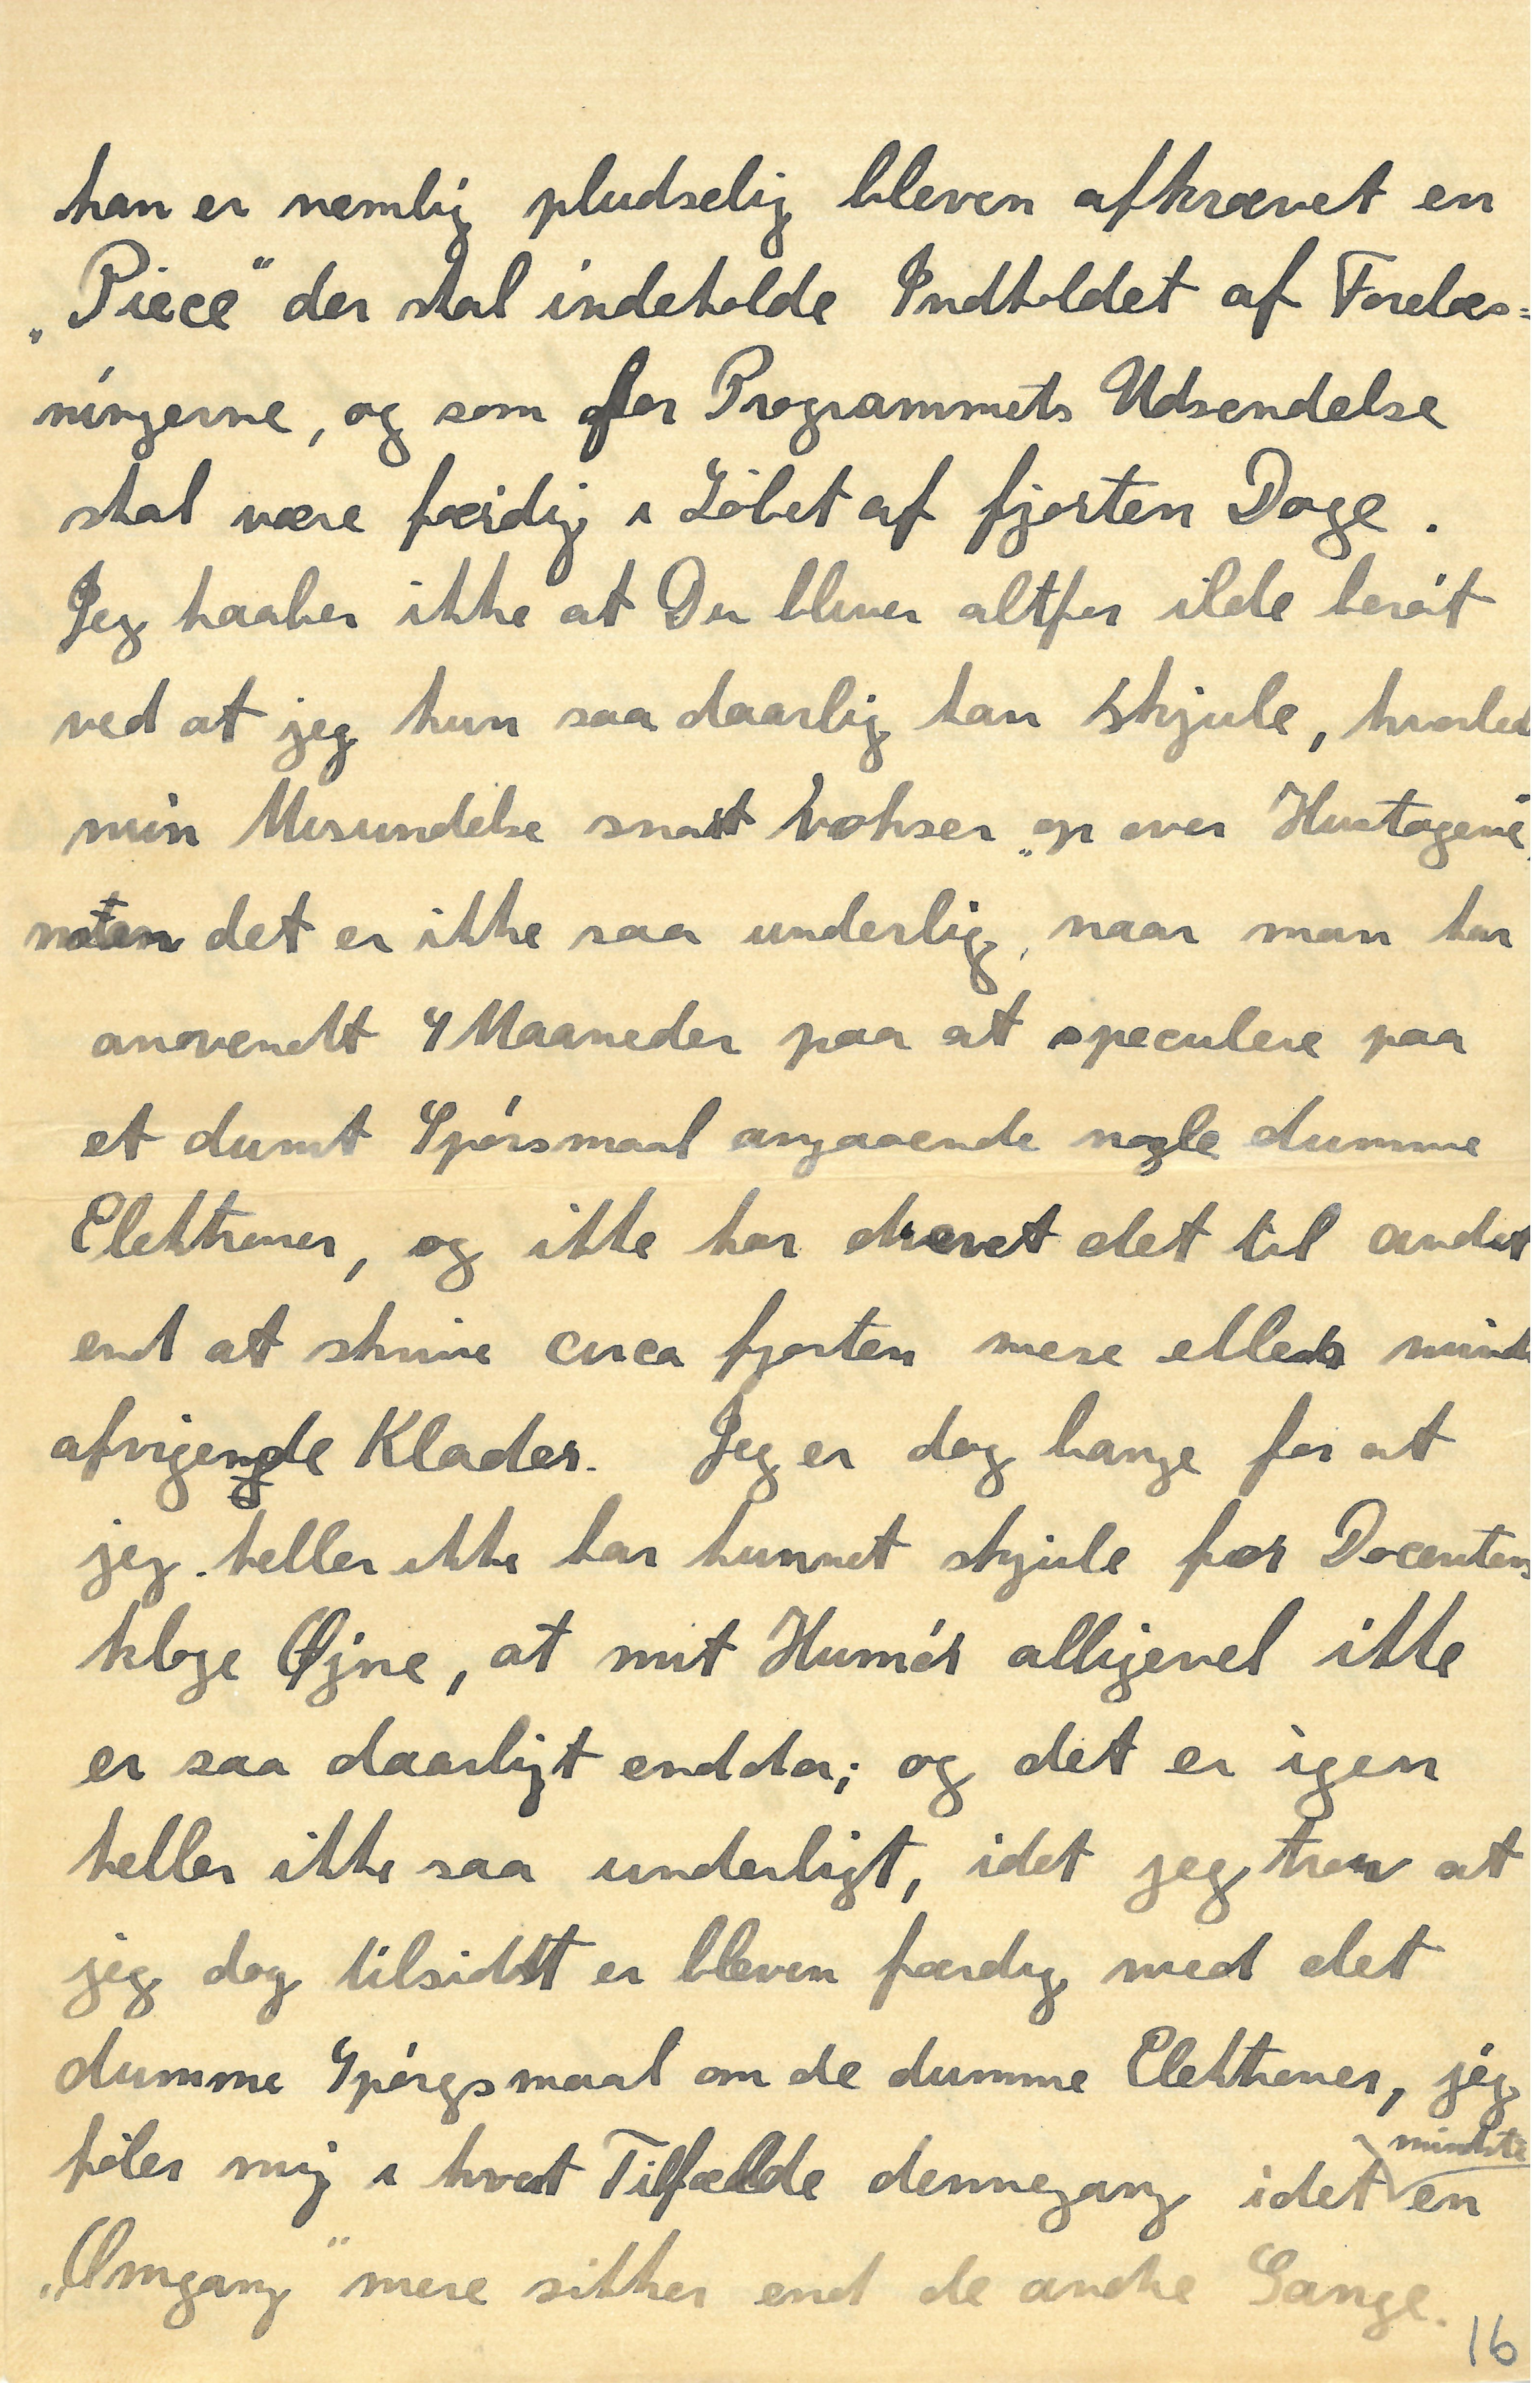 han er nemlig pludselig bleven afkrævet en
„Piece“ der skal indeholde Indholdet af Forelæs=
ningerne, og som før Programmets Udsendelse
skal være færdig i Løbet af fjorten Dage.
Jeg haaber ikke at Du bliver altfor ilde berøt
ved at jeg kun saa daarlig kan skjule, hvorled
min Misundelse snart vokser „op over Hustagene“,
men det er ikke saa underlig, naar man har
anvendt 4 Maaneder paa at speculere paa
et dumt Spørsmaal angaaende nogle dumme
Elektroner, og ikke har drevet det til andet
end at skrive circa fjorten mere eller mind
afvigende Klader. Jeg er dog bange for at
jeg heller ikke har kunnet skjule for Docentens
kloge Øjne, at mit Humør alligevel ikke
er saa daarligt endda; og det er igen
heller ikke saa underligt, idet jeg tror at
jeg dog tilsidst er bleven færdig med det
dumme Spørgsmaal om de dumme Elektroner, jeg
føler mig i hvert Tilfælde dennegang idet mindste en
„Omgang“ mere sikker end de andre Gange.
16